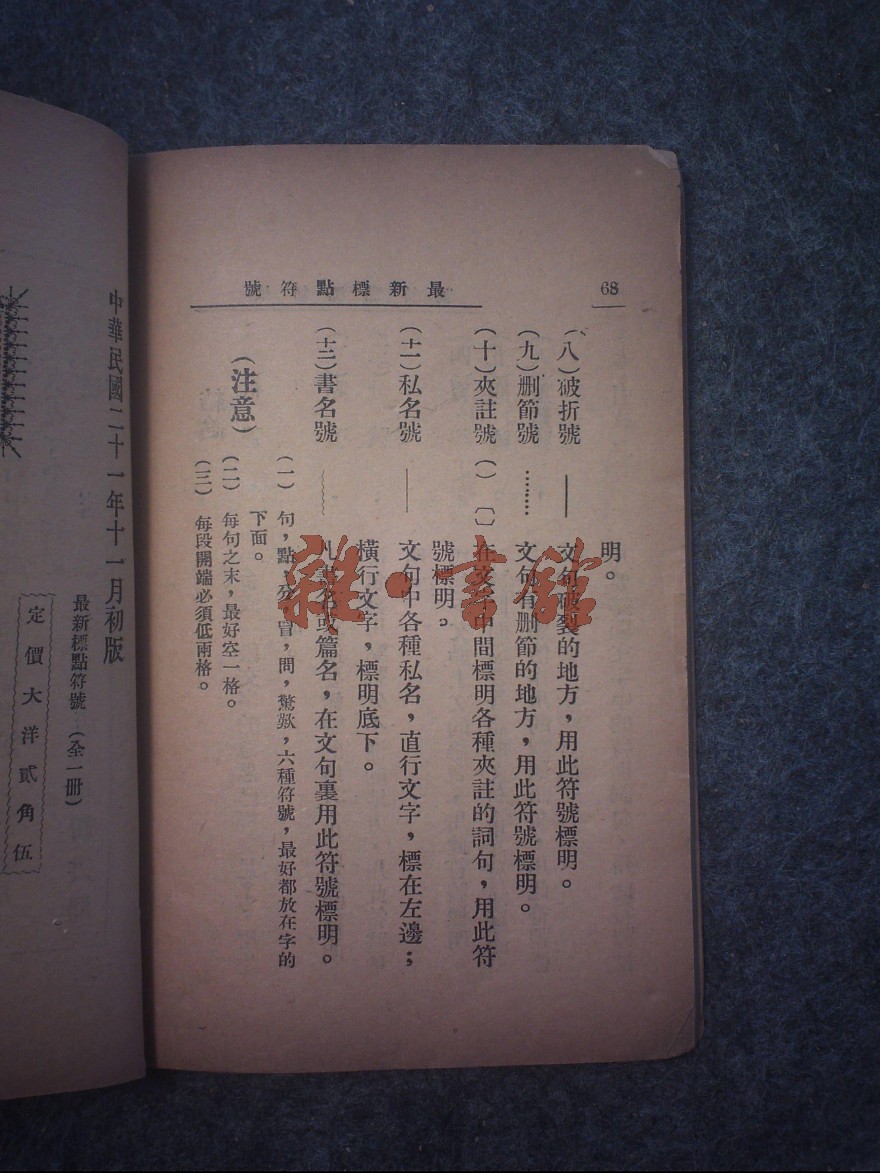 68
最新標點符號
明。
(八)破折號 —— 文句破裂的地方，用此符號標明。
(九)刪節號 ……… 文句有刪節的地方，用此符號標明。
(十)夾註號 ( ) 〔 〕 在文字中間標明各種夾註的詞句，用此符
號標明。
(十一)私名號 —— 文句中各種私名，直行文字，標在左邊；
橫行文字，標明底下。
(十二)書名號 ﹏﹏ 凡書名或篇名，在文句裏用此符號標明。
(注意)
(一) 句，點，分，冒，問，驚歎，六種符號，最好都放在字的
下面。
(二) 每句之末，最好空一格。
(三) 每段開端必須低兩格。
中華民國二十一年十一月初版
最新標點符號 (全一册)
定價大洋貳角伍
雜·書館